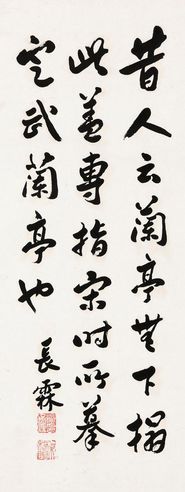 昔人云蘭亭無下搨
此蓋專指宋時所摹
定武蘭亭也
長霖